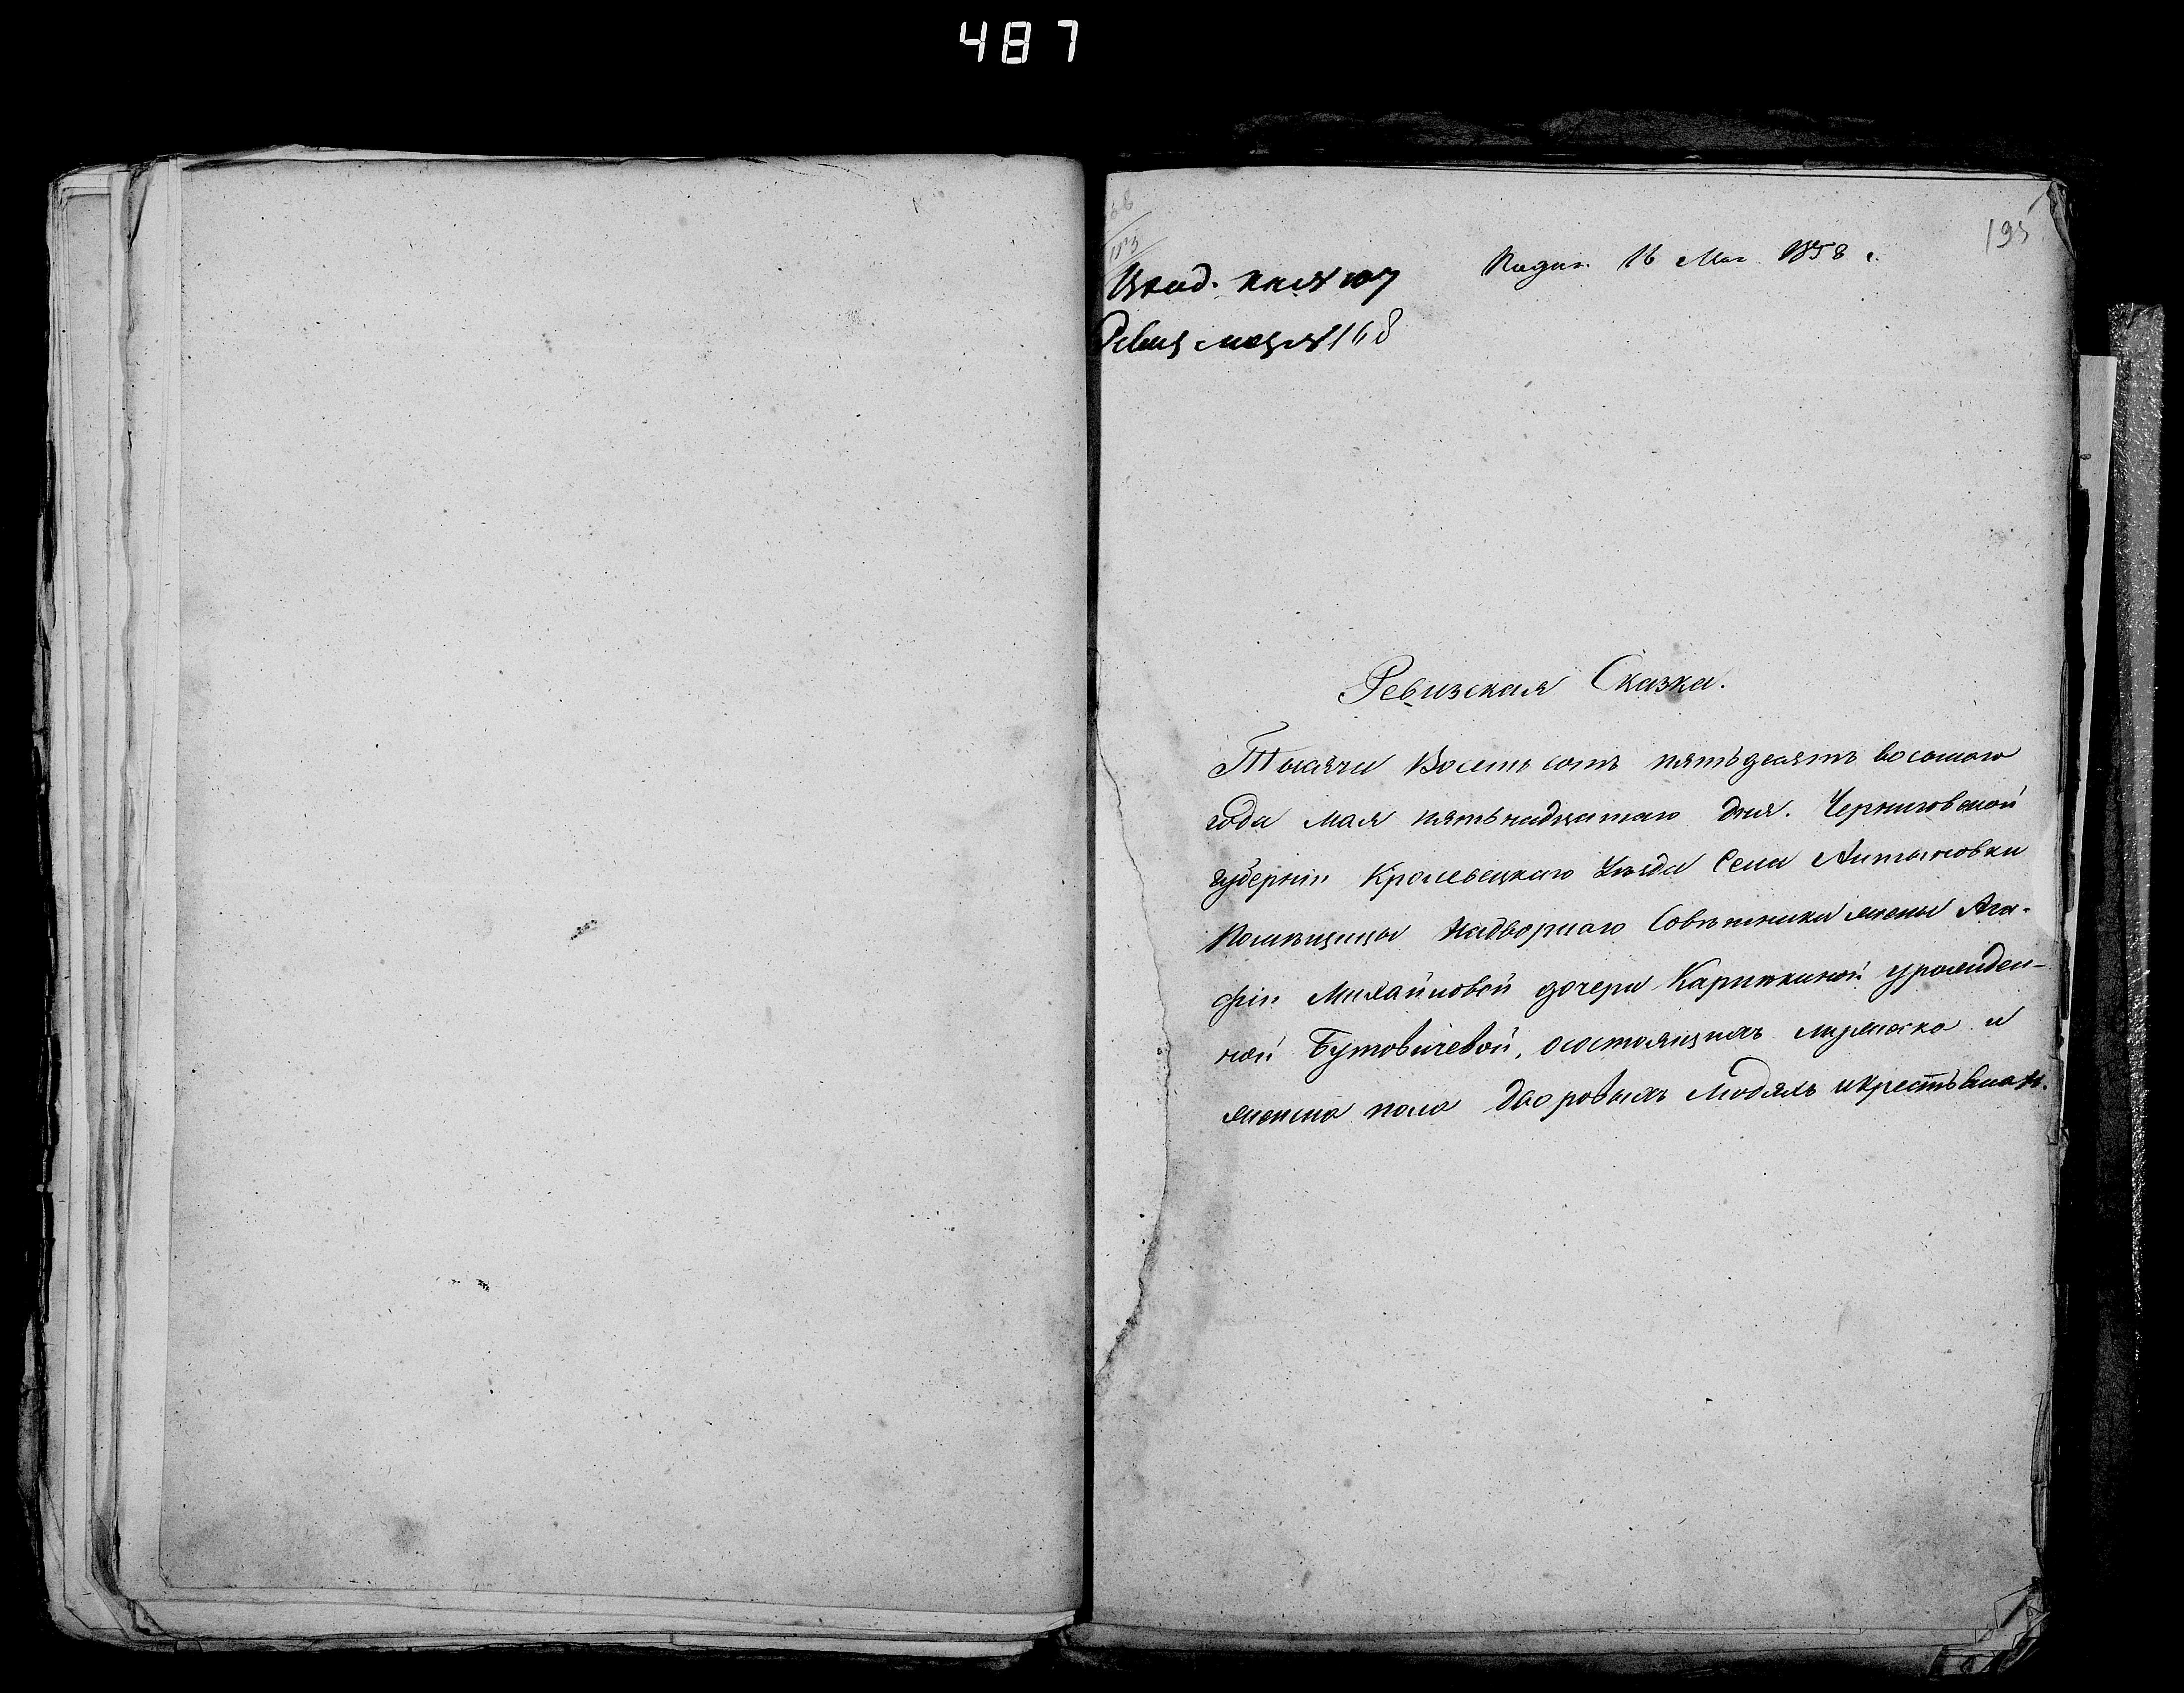 487
195
Подан. 16 Мая 1858 г.
107
168
Ревизская Сказка.
Тысячи Восемь сотъ пятьдесятъ восьмого
года мая пятьнадцатаго дня. Черниговской
губерніи Кролевецкаго Уезда Села Литвиновки
Помѣщицы Надворнаго Совѣтника жены Ага-
фіи Михайловой дочери Карпѣкиной урожден-
ной Бутовичевой, осостоящихъ мужеска и
женска пола дворовыхъ Людяхъ икрестьянахъ.